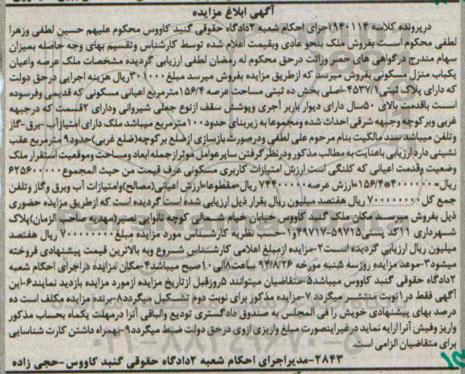 آگهی ابلاغ مزایده
درپرونده کلاسه ۹۴۰۱۱۴اجرای احکام شعبه ۲دادگاه حقوقی گنبد کاووس محکوم علیهم حسین لطفی وزهرا
لطفی محکوم است بفروش ملک بنحو عادی وبقیمت اعلام شده توسط کارشناس وتقسیم بهای وجه حاصله بمیزان
سهام مندرج درگواهی های حصر وراثت درحق محکوم له رمضان لطفی ارزیابی گردیده مشخصات ملک عرصه واعیان
یکباب منزل مسکونی بفروش میرسد که ازطریق مزایده بفروش میرسد مبلغ ۳۰۱۰۰۰ریال هزینه اجرایی درحق دولت
که دارای پلاک ثبتی ۴۵۳۷/۱-اصلی بخش ده ثبتی مساحت عرصه ۱۵۶/۴مترمربع اعیانی مسکونی که قدیمی وفرسوده
است باقدمت بالای ۵۰سال دارای دیوار باربر آجری وپوشش سقف ازنوع جملی شیروانی ودارای ۲قسمت که درجبهه
غربی وبرکوچه وجبهه شرقی احداث شده ومجموعا به زیربنای حدود۱۰۰مترمربع میباشد.ملک دارای امتیاز آب-برق-گاز
وتلفن میباشد سند مالکیت بنام مرحوم علی لطفی ودرصورت بازسازی ازضلع برکوچه(ضلع غربی)حدود۹ مترمربع عقب
نشینی دارد ارزیابی باعنایت به مطالب مذکور ودرنظرگرفتن سایرعوامل موثرازجمله ابعاد ومساحت وموقعیت استقرار ملک
وضعیت وقدمت اعیانی که کلنگی است ارزش امتیازات کاربری مسکونی عرف قیمت من حیث المجموع
ریال= ۱۵۶/۴*ارزش عرصه ۷۴۴۰۰۰۰۰ریال-مقطوعا-ارزش اعیانی(مصالح)وامتیازات آب وبرق وگاز وتلفن
جمع کل ۷۰۰۰۰۰۰۰۰ ریال هفتصد میلیون ریال بقرار ذیل ارزیابی شده است گردیده است که ازطریق مزایده حضوری
ذیل بفروش میرسد. مکان ملک گنبد کاووس خیابان خیام شمالی کوچه نانوایی نصر(مهدیه صاحب الزمان)پلاک
شهرداری ۱۱کد پستی ۱-حسب نظریه کارشناس مورد مزایده مبلغ ۷۰۰۰۰۰۰۰۰ ریال هفتصد
میلیون ریال ارزیابی گردیده است۲-مزایده ازمبلغ اعلامی کارشناس شروع وبه بالاترین قیمت پیشنهادی فروخته
میشود۳-موعد مزایده روزسه شنبه مورخه ۹۴/۸/۲۶ ساعت۸الی۱۰صبح میباشد۴-مکان مزایده دراجرای احکام شعبه
۲دادگاه حقوقی گنبد کاووس میباشد۵-متقاضیان میتوانند ۵روزقبل ازتاریخ مزایده ازمورد مزایده بازدید نمایند۶-این
آگهی فقط در۱نوبت منتشر میگردد ۷-مزایده مذکور برای نوبت دوم تشکیل میگردد۸-برنده مزایده مکلف است ده
درصد بهای پیشنهادی خویش را فی المجلس به صندوق دادگستری تودیع والباقی آنرا درمهلت یکماه بحساب مذکور
واریز وفیش آنرا ارایه نماید درغیراینصورت مبلغ واریزی ازوی درحق دولت ضبط میگردد۹-بهمراه داشتن کارت شناسایی
برای متقاضیان الزامی است.
۲۸۴۳-مدیراجرای احکام شعبه ۲دادگاه حقوقی گنبد کاووس-حجی زاده